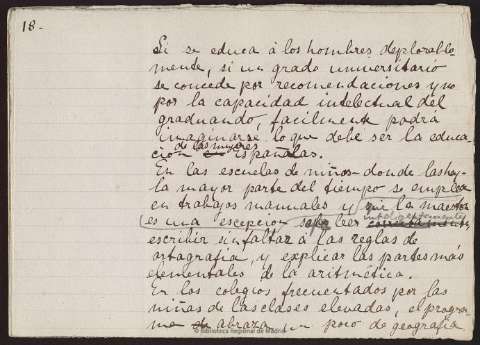 18-
Si se educa á los hombres deplorable-
mente, si un grado universitario
se concede por recomendaciones y no
por la capacidad intelectual del
graduando, facilmente podra
imaginarse lo que debe ser la educa-
cion de las mujeres Españolas.
En las escuelas de niños-donde las hay-
la mayor parte del tiempo se emplea
en trabajos manuales y si la maestra
es una escepcion sepa leer
escribir sin faltar á las reglas de
ortografia, y explicar las partes más
elementales de la aritmética.
En los colegios frecuentados por las
niñas de las clases elevadas, el progra-
ma abraza un poco de geografia
© Biblioteca Regional de Madrid